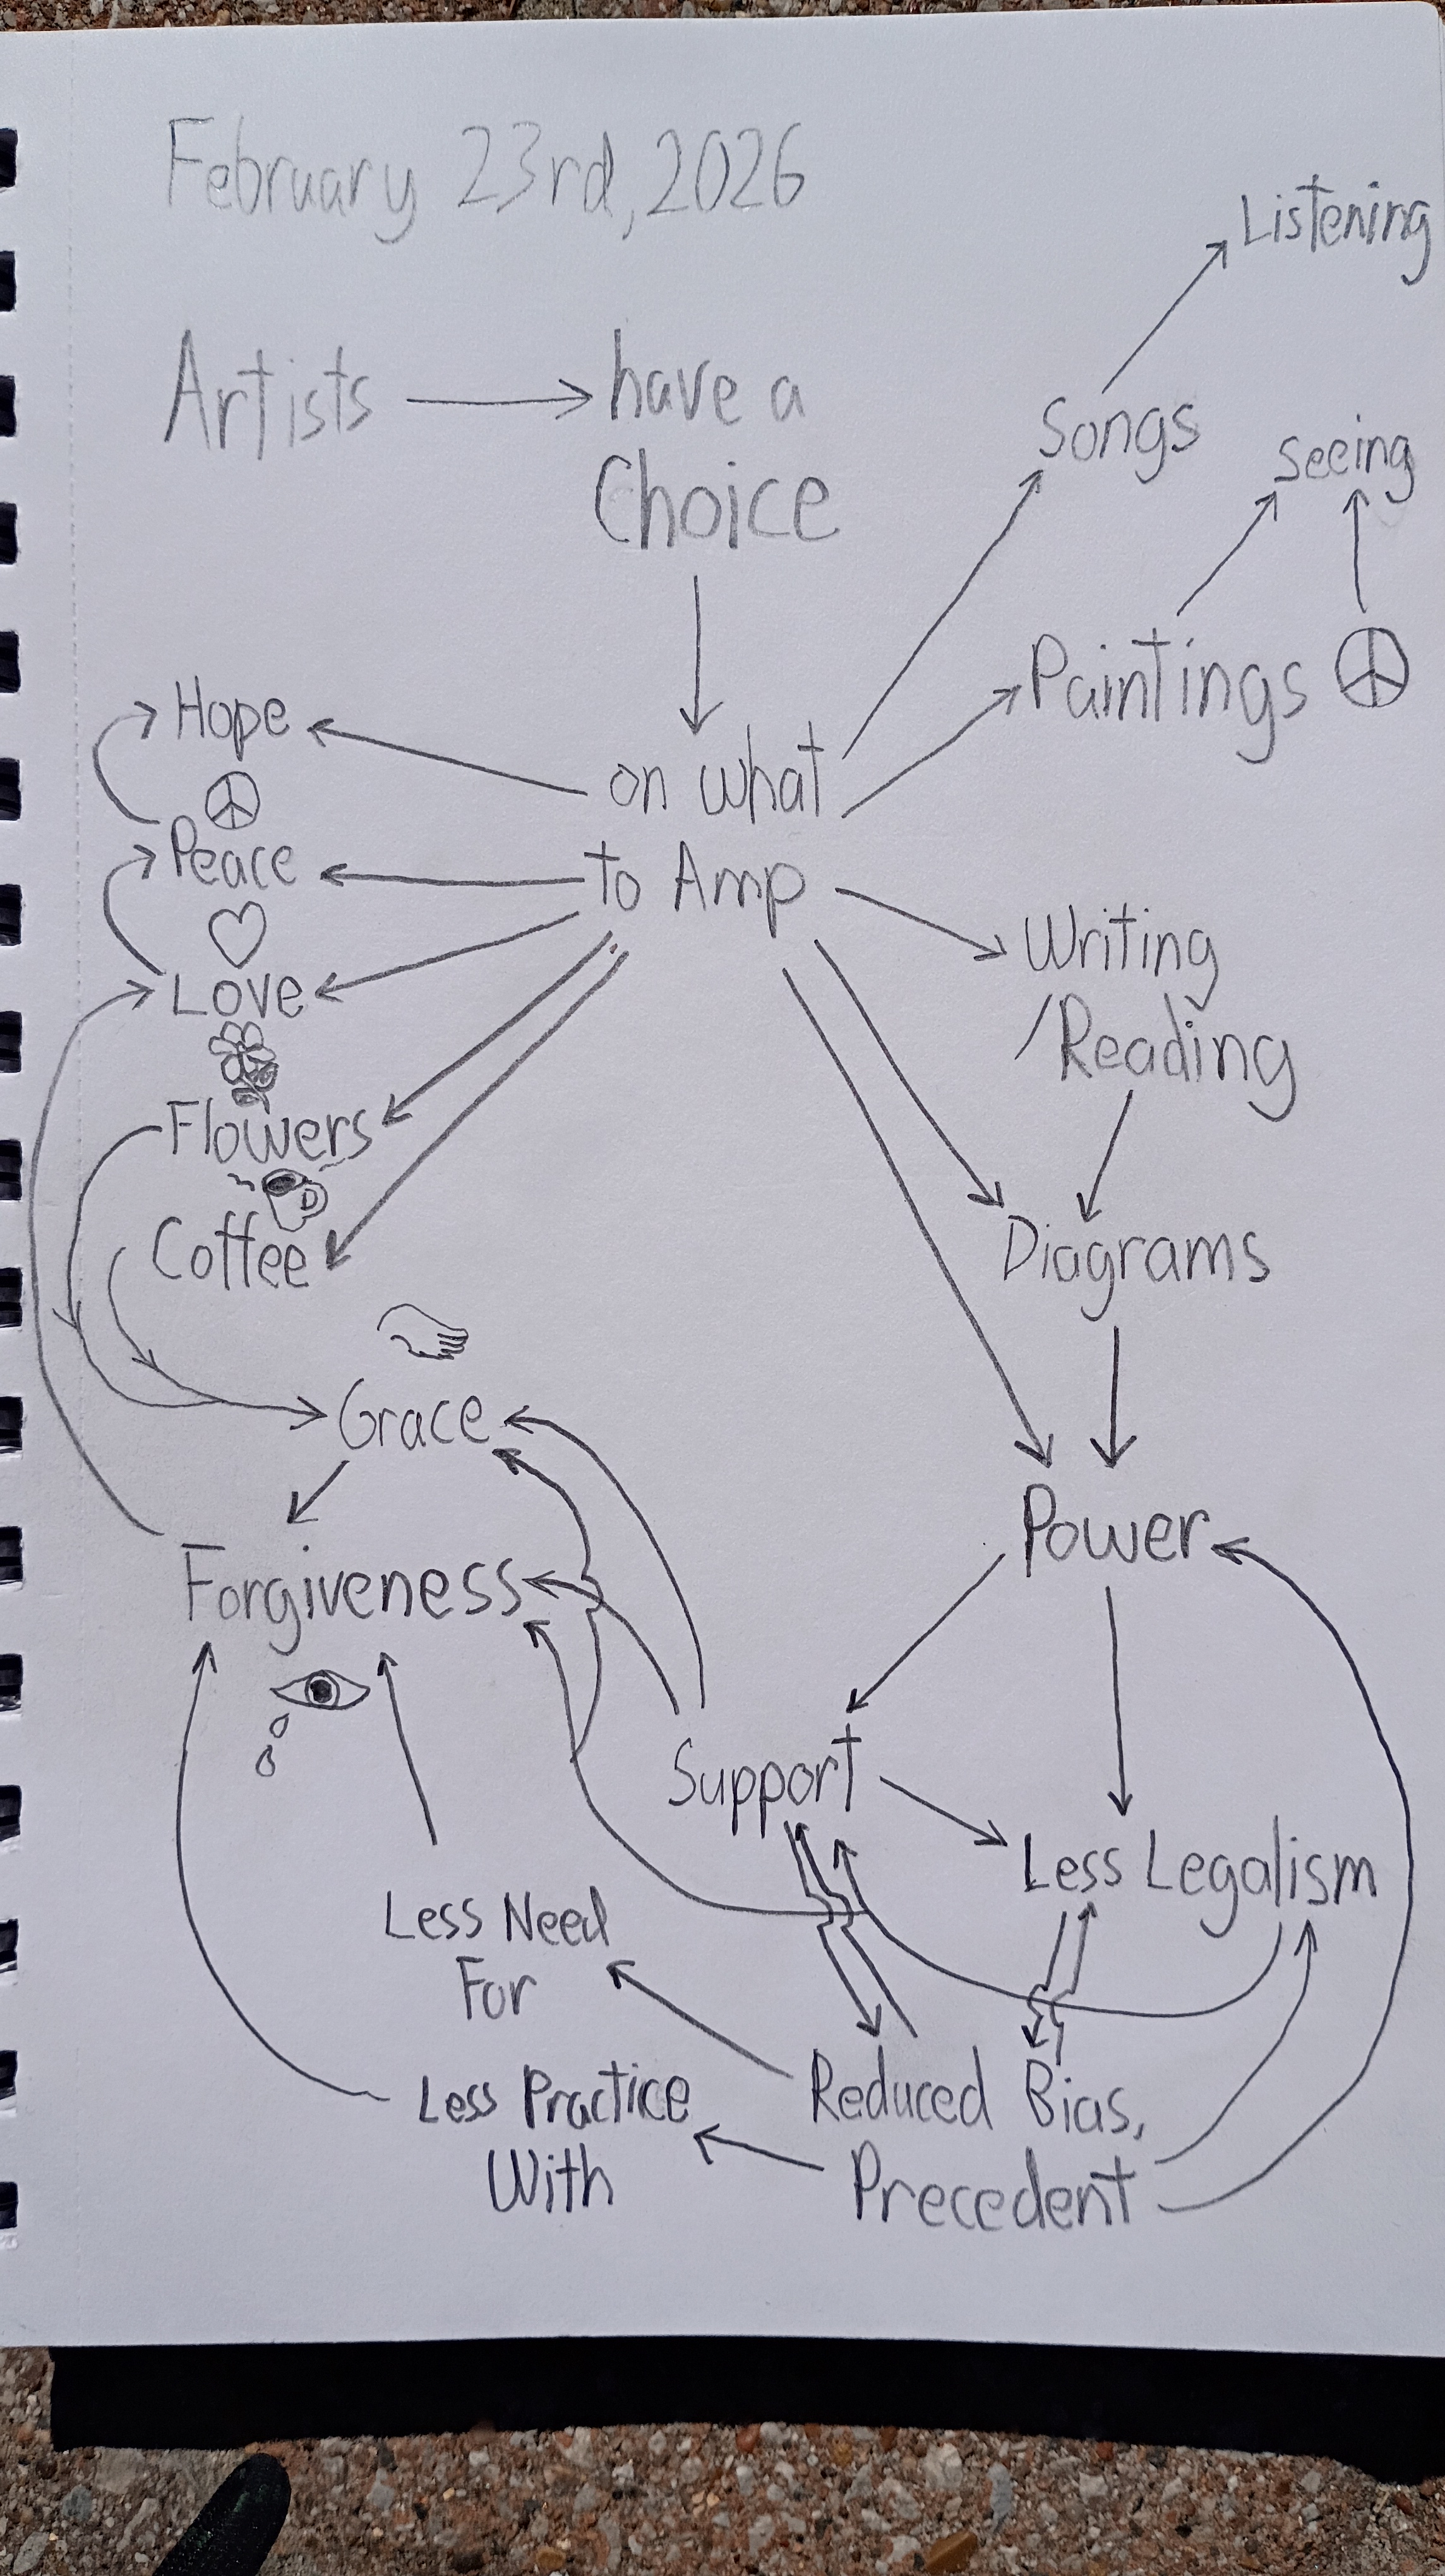 February 23rd, 2026
Listening
Artists have a
Choice
Songs
seeing
Paintings
Hope
on what
to Amp
Peace
Love
Writing
/Reading
Flowers
Coffee
Diagrams
Grace
Power
Forgiveness
Support
Less Legalism
Less Need
For
Reduced Bias,
Precedent
Less Practice
With